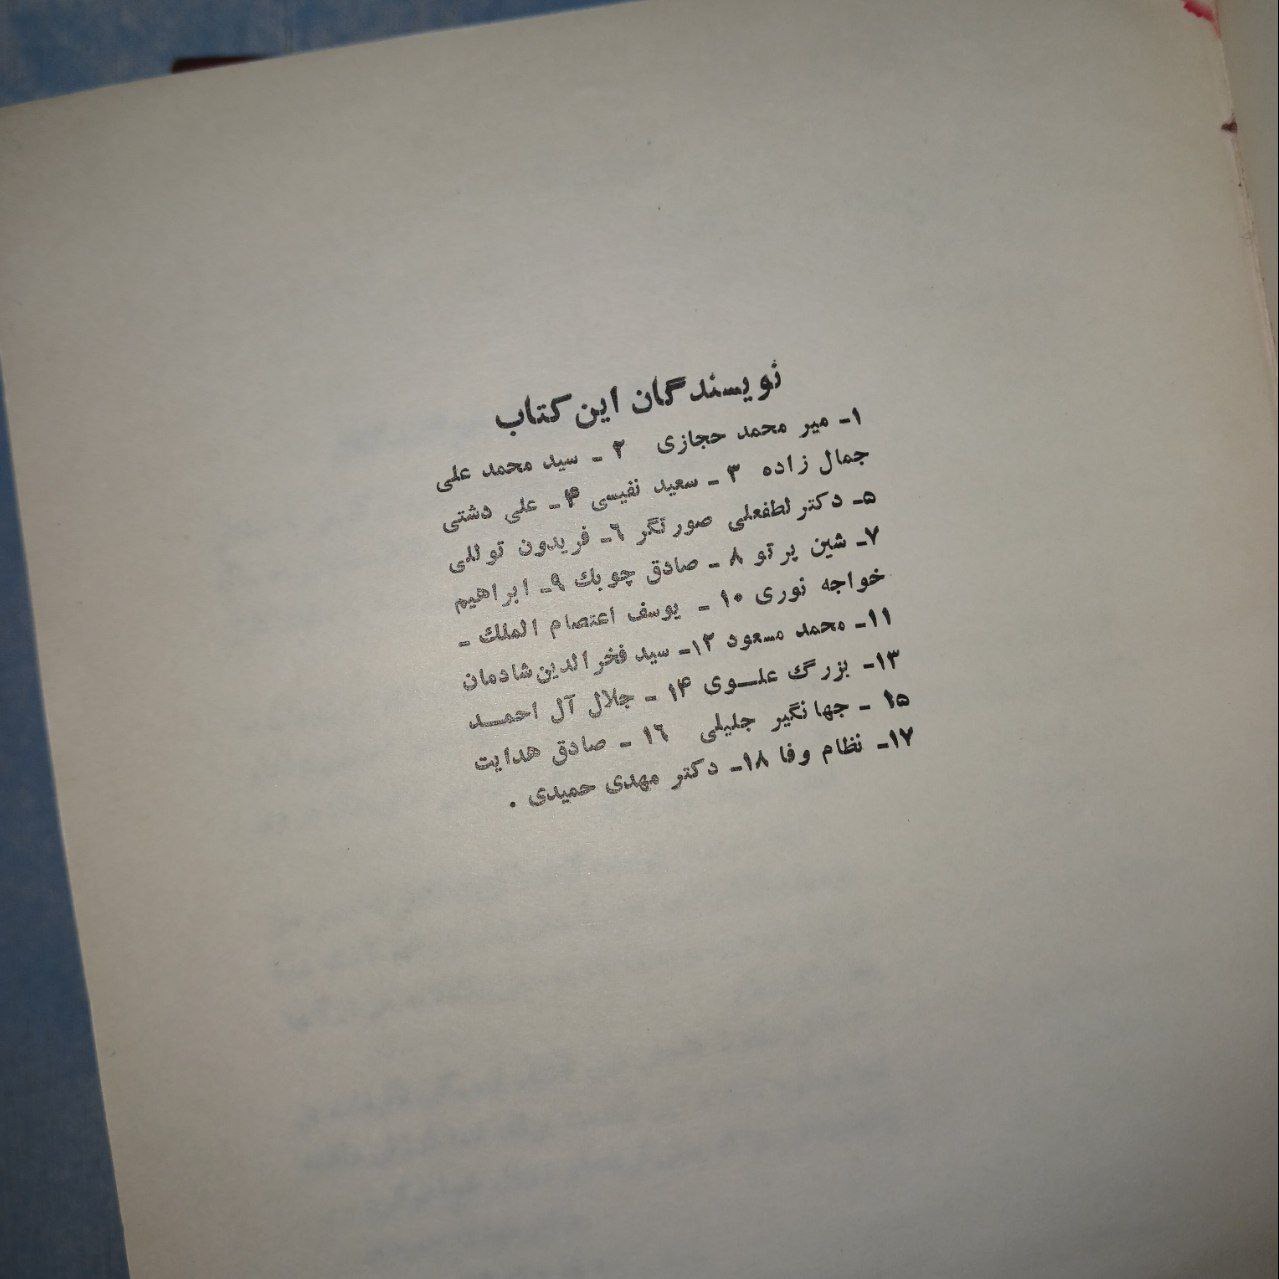 نویسندگان این کتاب
۱ـ میر محمد حجازی ۲ ـ سید محمد علی
جمال زاده ۳ ـ سعید نفیسی ۴ـ علی دشتی
۵ـ دکتر لطفعلی صورتگر ۶ـ فریدون توللی
۷ـ شین پرتو ۸ ـ صادق چوبك ۹ـ ابراهیم
خواجه نوری ۱۰ ـ یوسف اعتصام الملك ـ
۱۱ـ محمد مسعود ۱۲ـ سید فخرالدین شادمان
۱۳ـ بزرگ علـوی ۱۴ ـ جلال آل احمـد
۱۵ ـ جهانگیر جلیلی ۱۶ ـ صادق هدایت
۱۷ـ نظام وفا ۱۸ـ دکتر مهدی حمیدی .